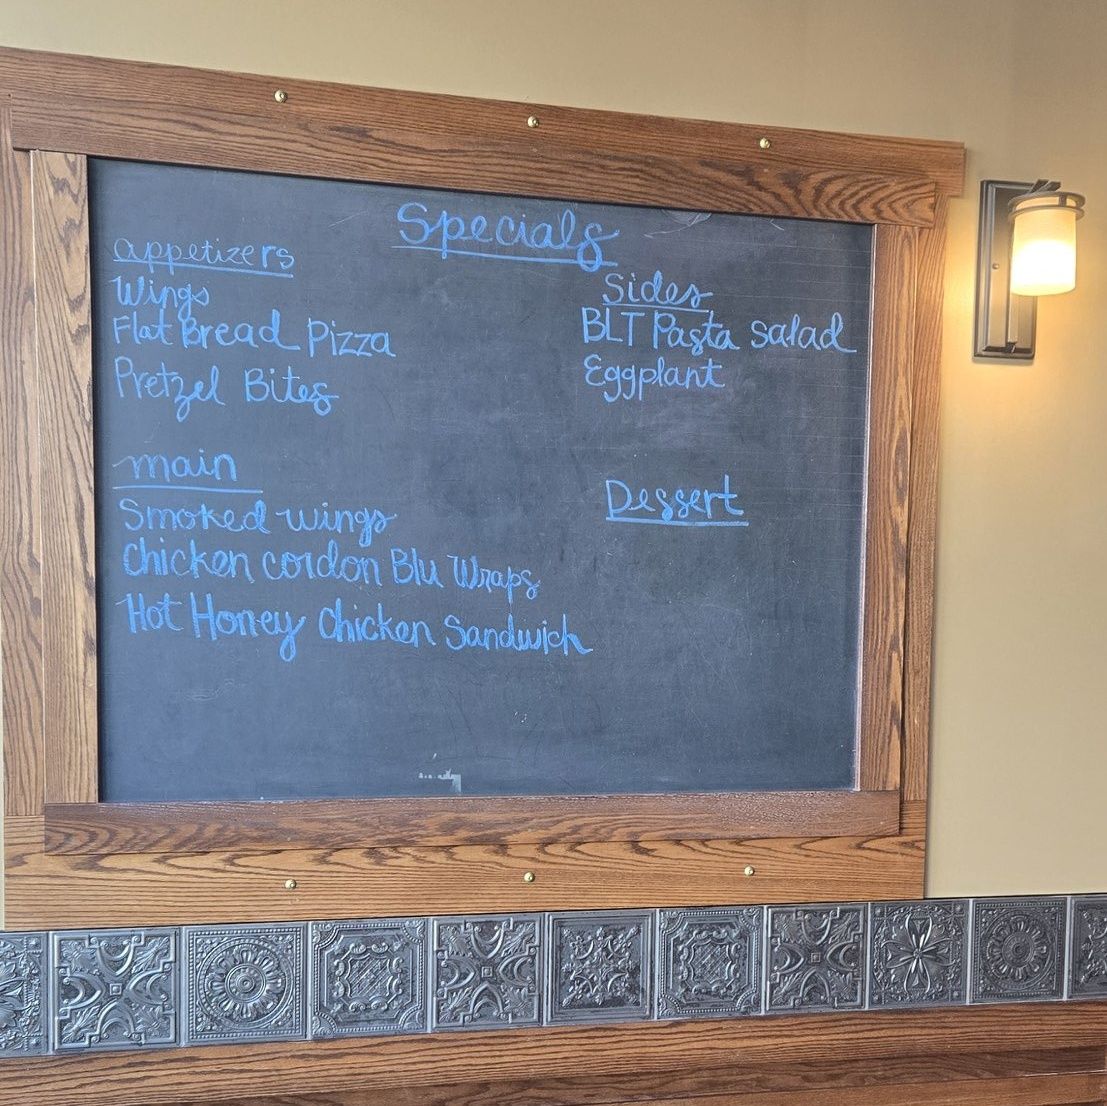 Specials
appetizers
Wings
Flat Bread Pizza
Pretzel Bites
main
Smoked wings
Chicken cordon Blu Wraps
Hot Honey Chicken Sandwich
Sides
BLT Pasta Salad
Eggplant
Dessert